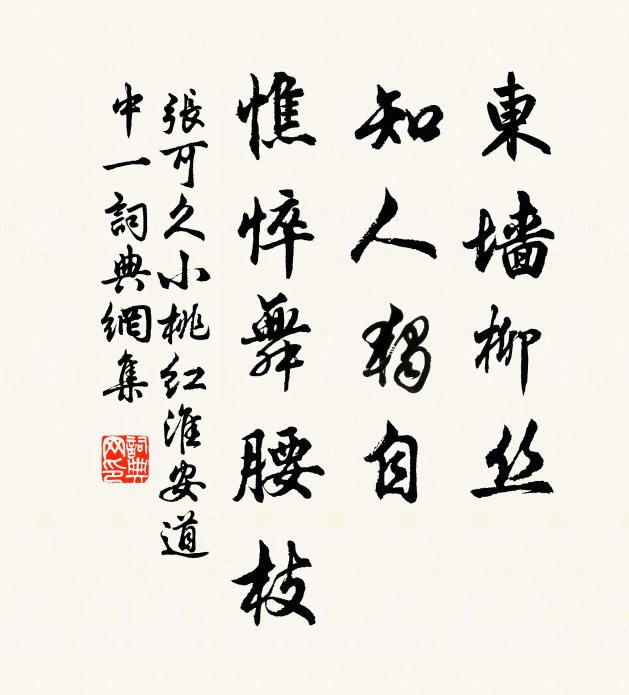 東墻柳丝
知人獨自
憔悴舞腰枝
張可久小桃红淮安道
中一詞典網集
詞典
网印